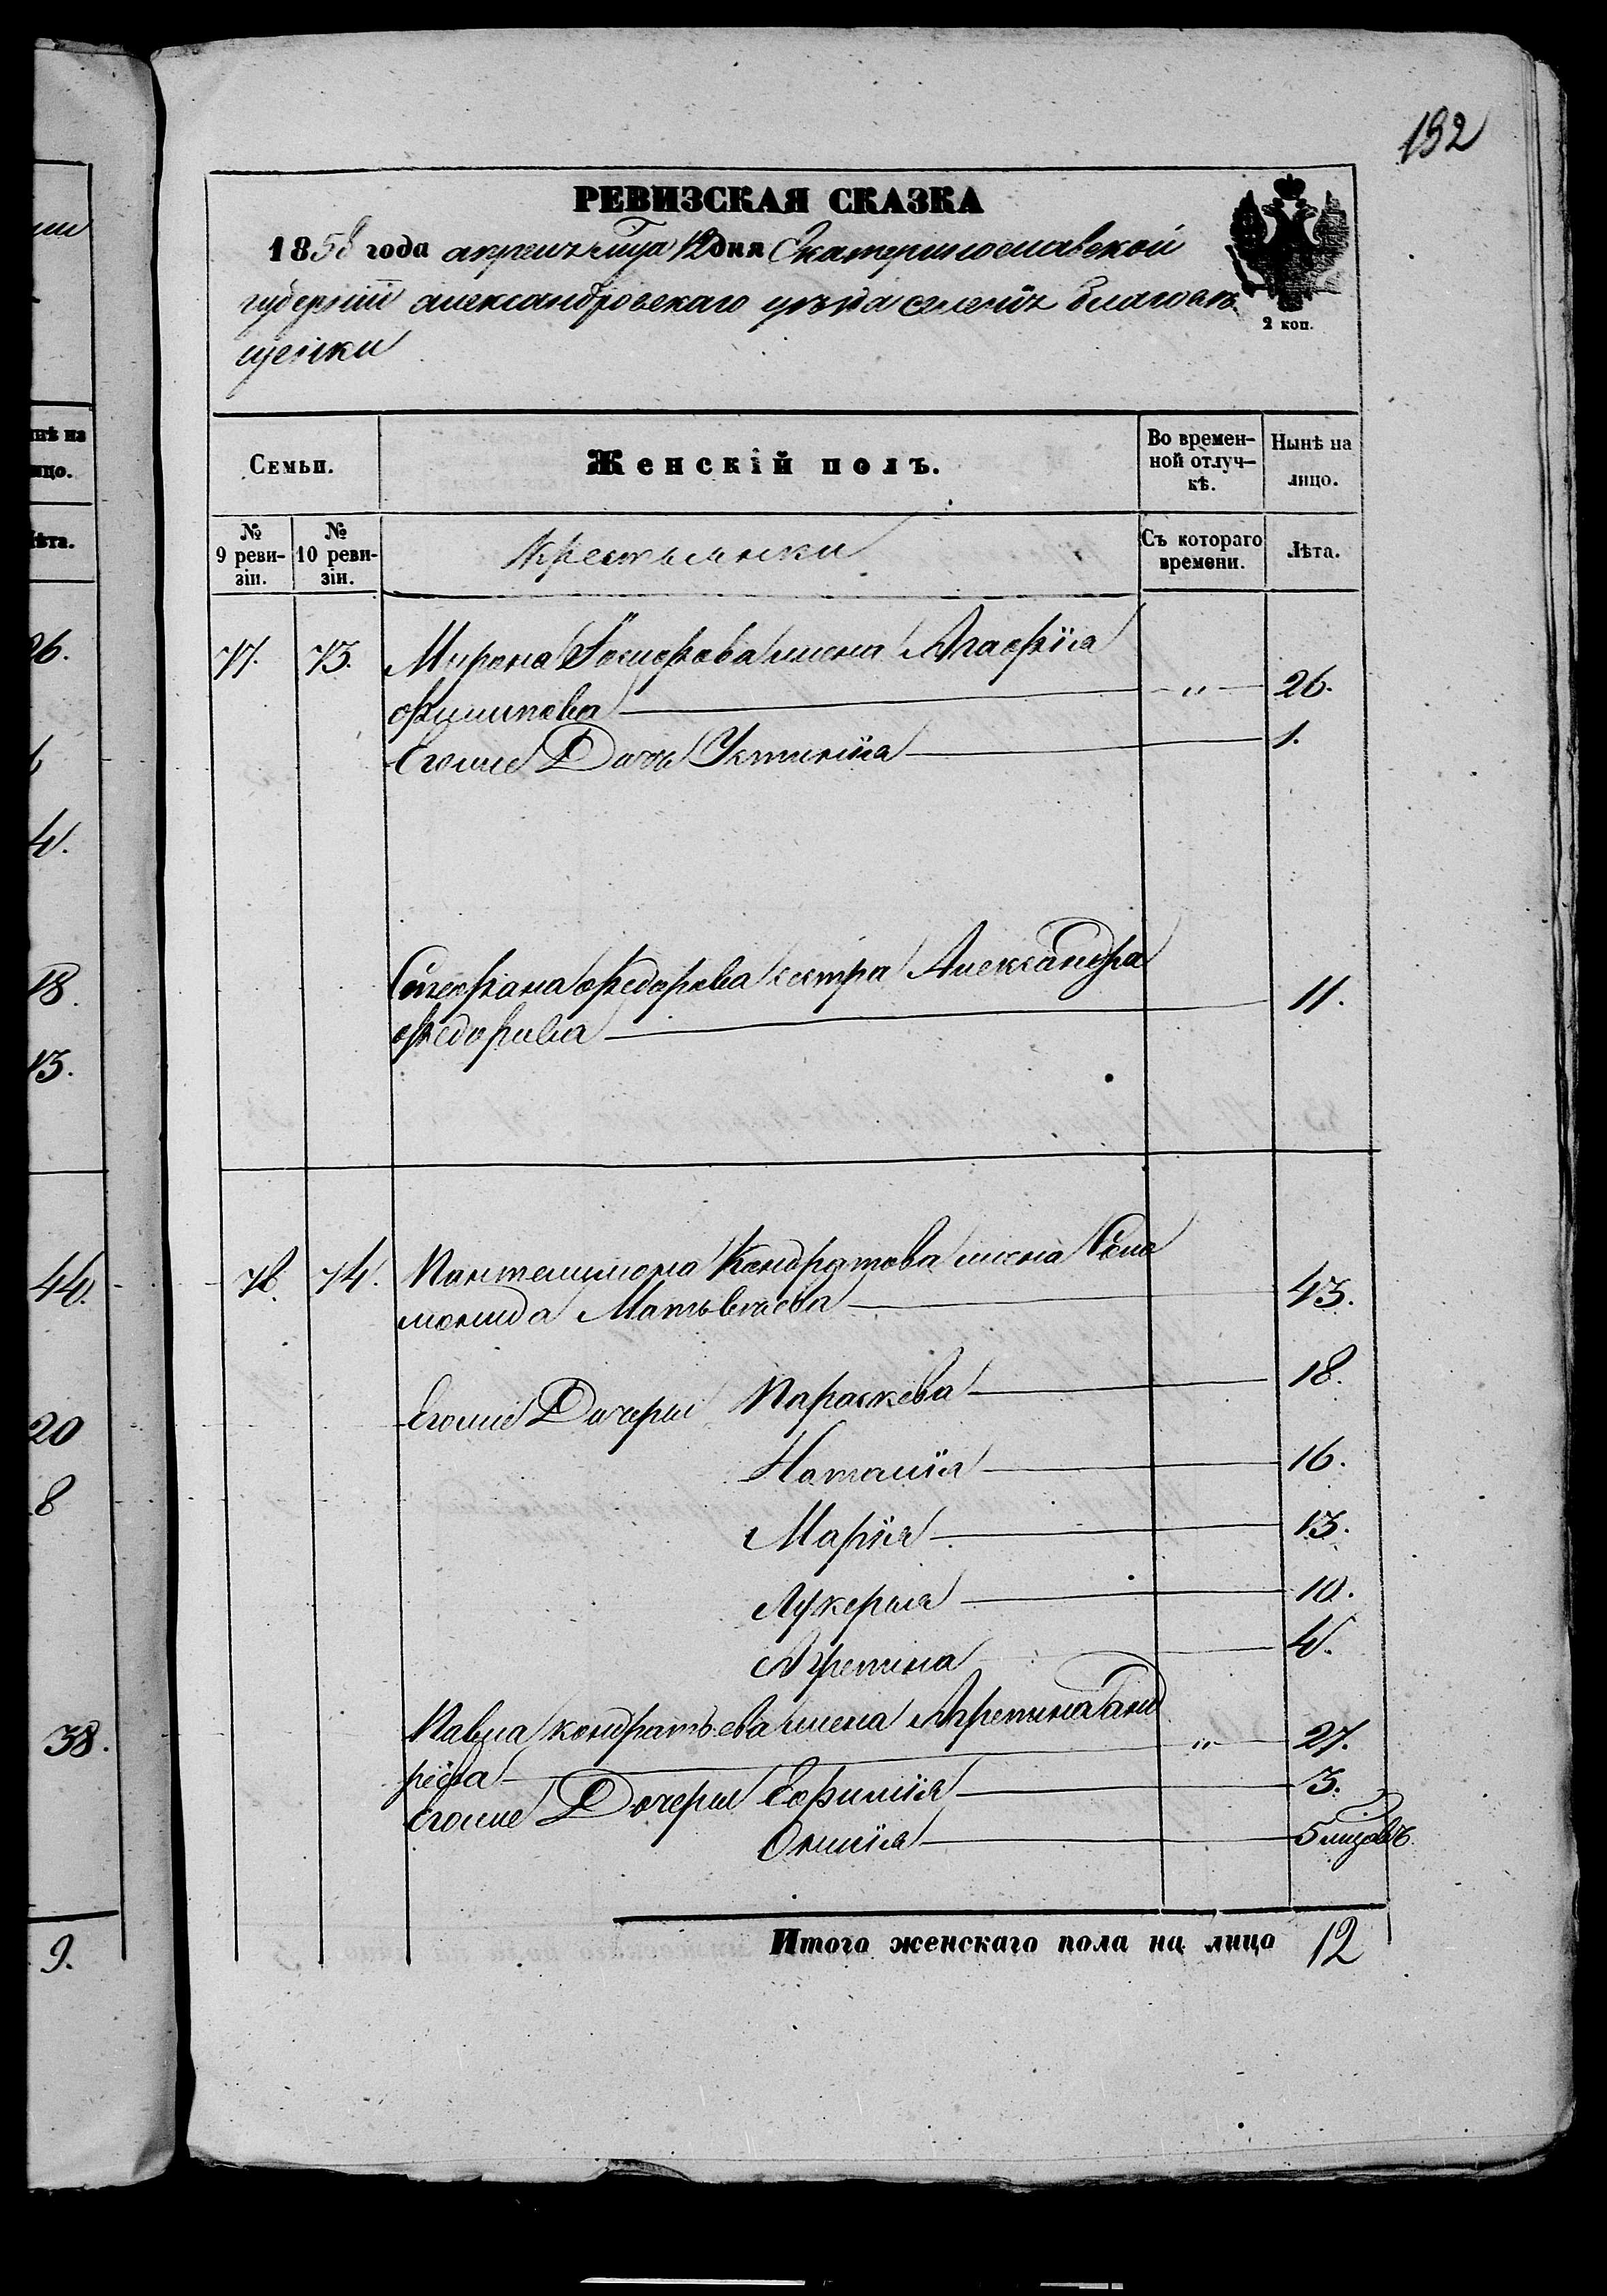 192
РЕВИЗСКАЯ СКАЗКА
1858 года апреля мца 12 дня Екатеринославской
губернии александровскаго уезда селенiя благове-
щенки
2 коп.
Семьи.
Женскiй полъ.
Во времен-
ной отлуч-
кѣ.
Нынѣ на
лицо.
№
9 реви-
зiи.
№
10 реви-
зiи.
Крестьянки
Съ котораго
времени.
Лѣта.
77. 73. Мирона жена Агафiя
филипова " 26.
Егоже Дочь Устинiя 1.
Стефана федорова сестра Александра
федорова 11.
78. 74. Пантелимона Кондратова жена Сало
монида Матьвѣева 43.
Егоже Дочери Параскева 18.
Наталiя 16.
Марiя 13.
Лукерья 10.
Агрепина 4.
Павла кондратьева жена Агрепина Анд
рѣева " 27.
Егоже Дочери Ефимiя 3.
5 мцовъ
Итого женскаго пола на лицо 12
нѣ на
ицо.
ѣта.
26.
4.
18.
13.
44.
20
8
38.
9.